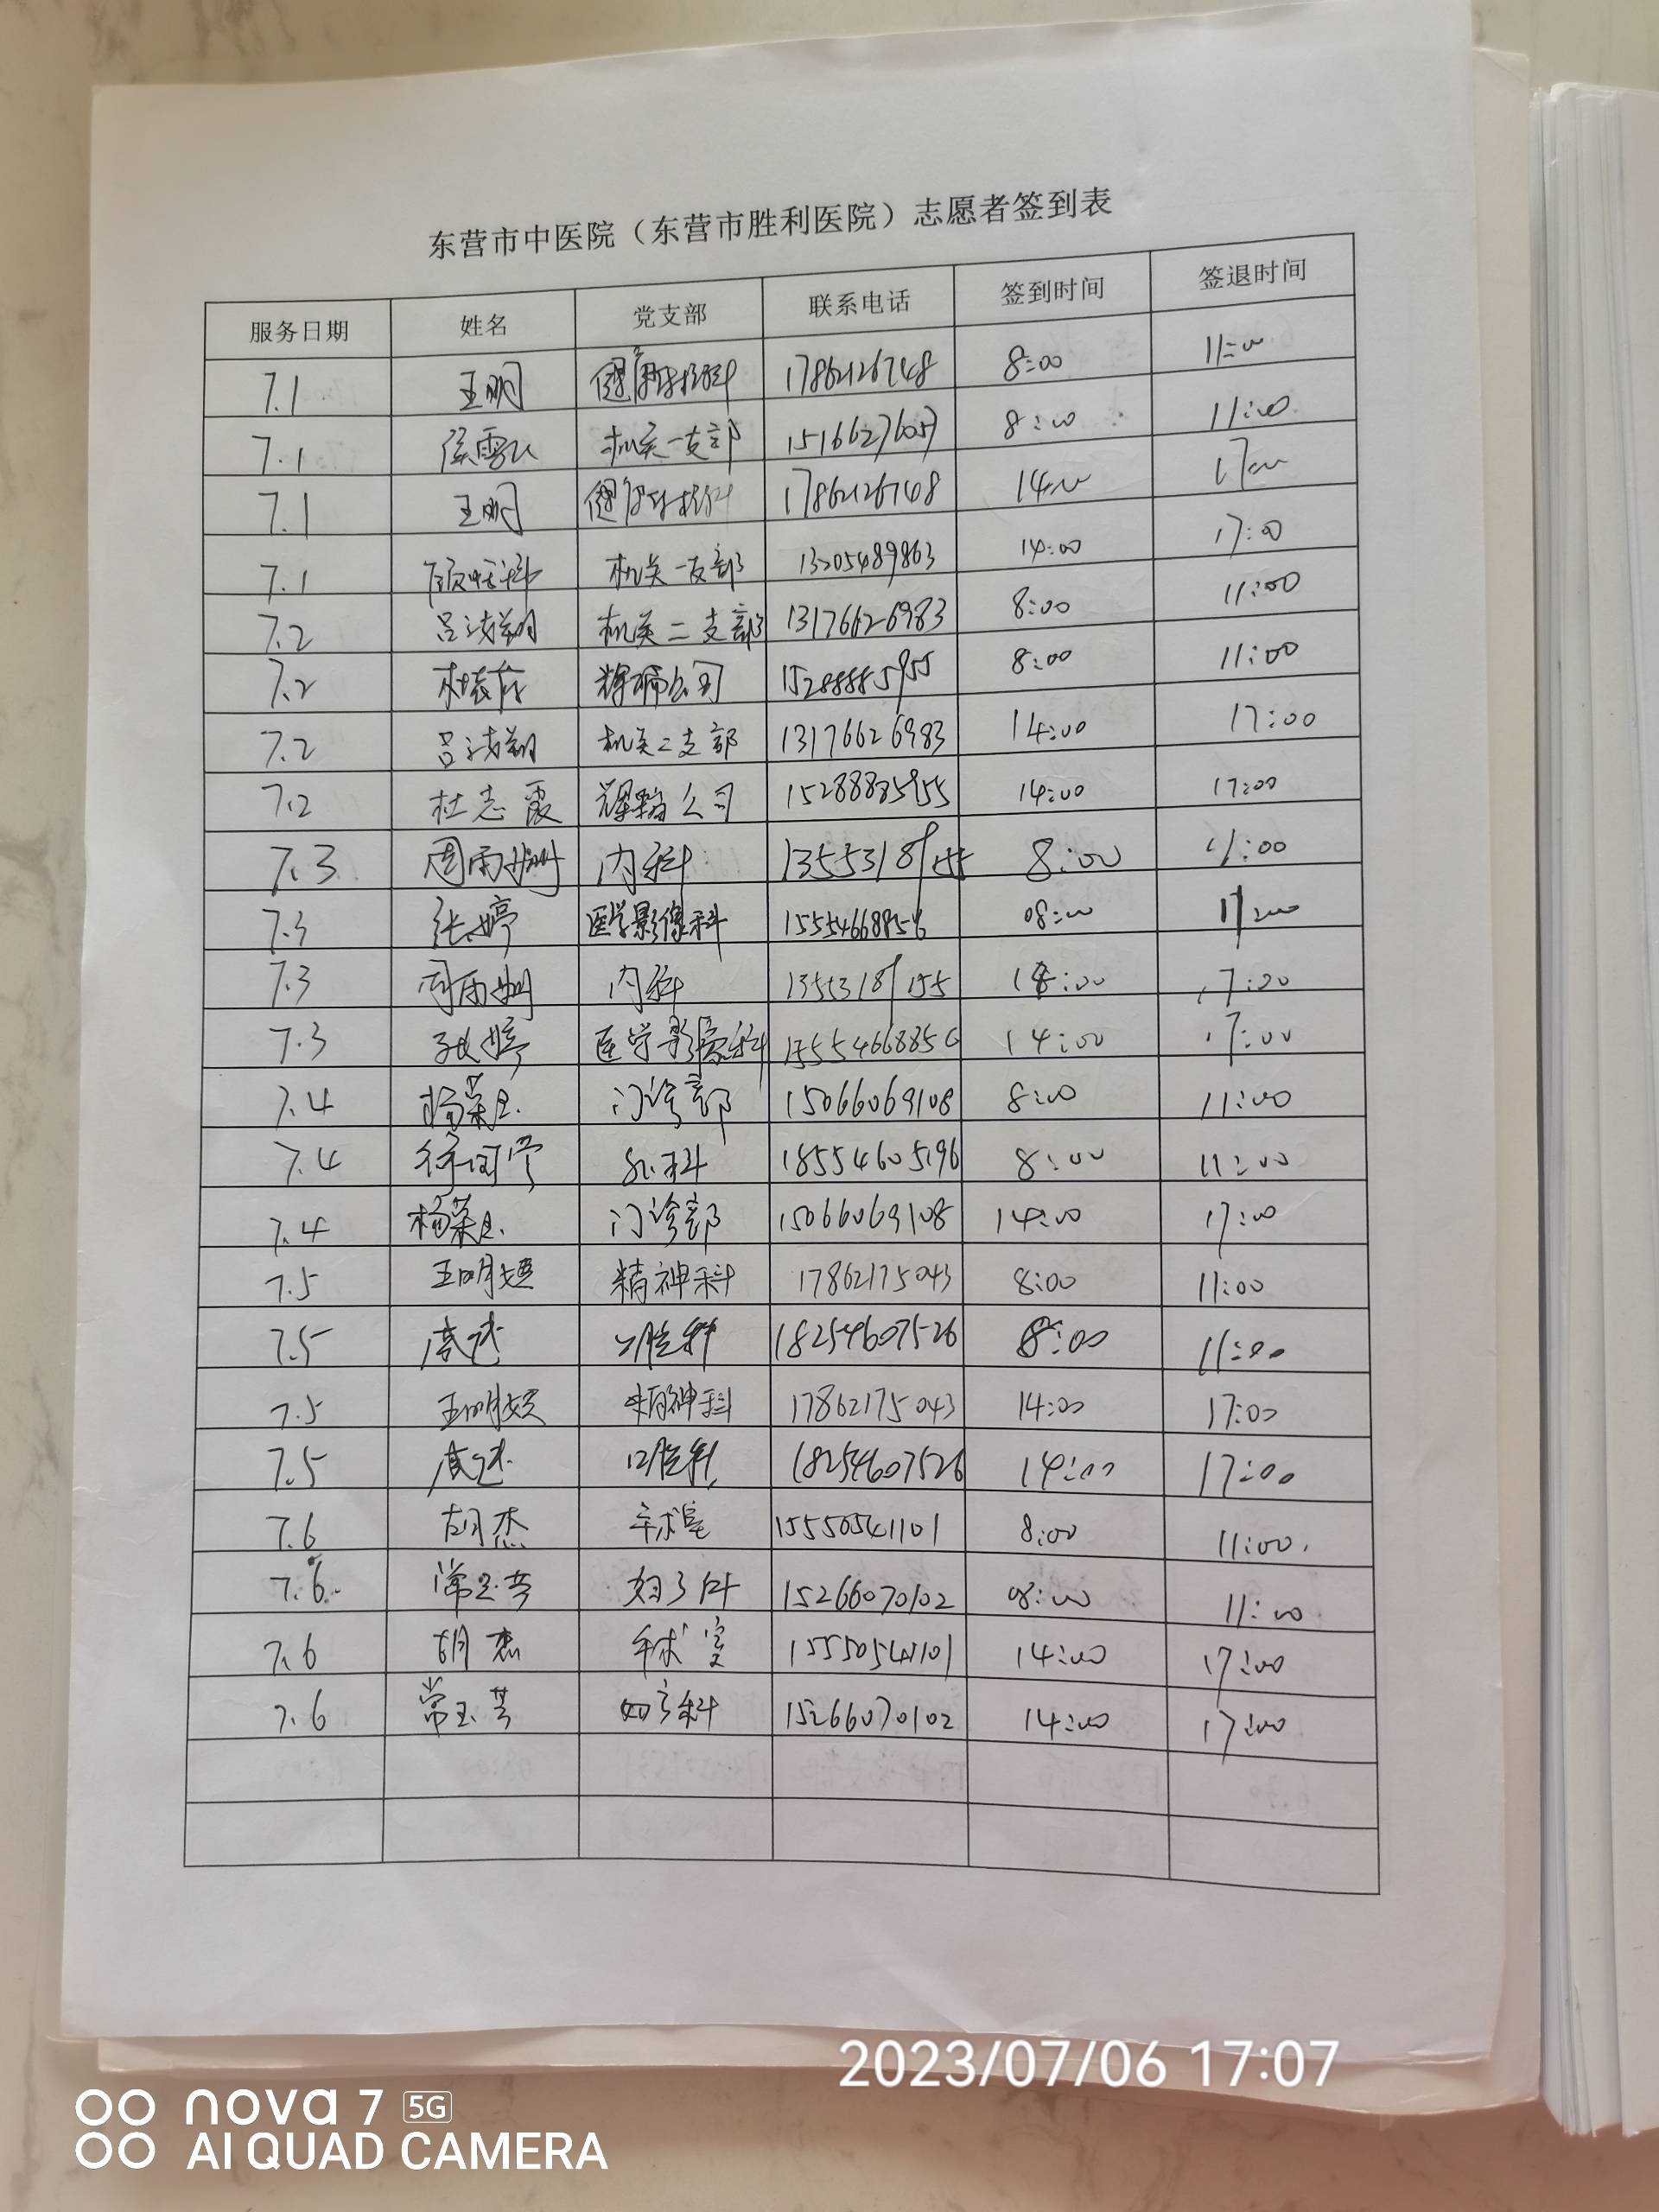 东营市中医院（东营市胜利医院）志愿者签到表
服务日期 姓名 党支部 联系电话 签到时间 签退时间
7.1 王明 17862126748 8:00 11:00
7.1 机关一支部 15166276057 8:00 11:00
7.1 王明 17862126748 14:00 17:00
7.1 机关一支部 13205489863 14:00 17:00
7.2 机关二支部 13176626983 8:00 11:00
7.2 公司 15288885955 8:00 11:00
7.2 机关二支部 13176626983 14:00 17:00
7.2 杜志霞 公司 15288885955 14:00 17:00
7.3 周雨 内科 8:00 11:00
7.3 张婷 医学影像科 15554668856 08:00 11:00
7.3 周雨 内科 17:00
7.3 张婷 医学影像科 15554668856 14:00 17:00
7.4 杨菜 门诊部 15066069108 8:00 11:00
7.4 外科 18554605196 8:00 11:00
7.4 杨菜 门诊部 15066069108 14:00 17:00
7.5 王明 精神科 17862175043 8:00 11:00
7.5 口腔科 18254607526 8:00 11:00
7.5 王明 精神科 17862175043 14:00 17:00
7.5 口腔科 18254607526 14:00 17:00
7.6 胡杰 手术室 15550541101 8:00 11:00
7.6 常玉芳 妇产科 15266070102 08:00 11:00
7.6 胡杰 手术室 15550541101 14:00 17:00
7.6 常玉芳 妇产科 15266070102 14:00 17:00
2023/07/06 17:07
nova 7 5G
AI QUAD CAMERA